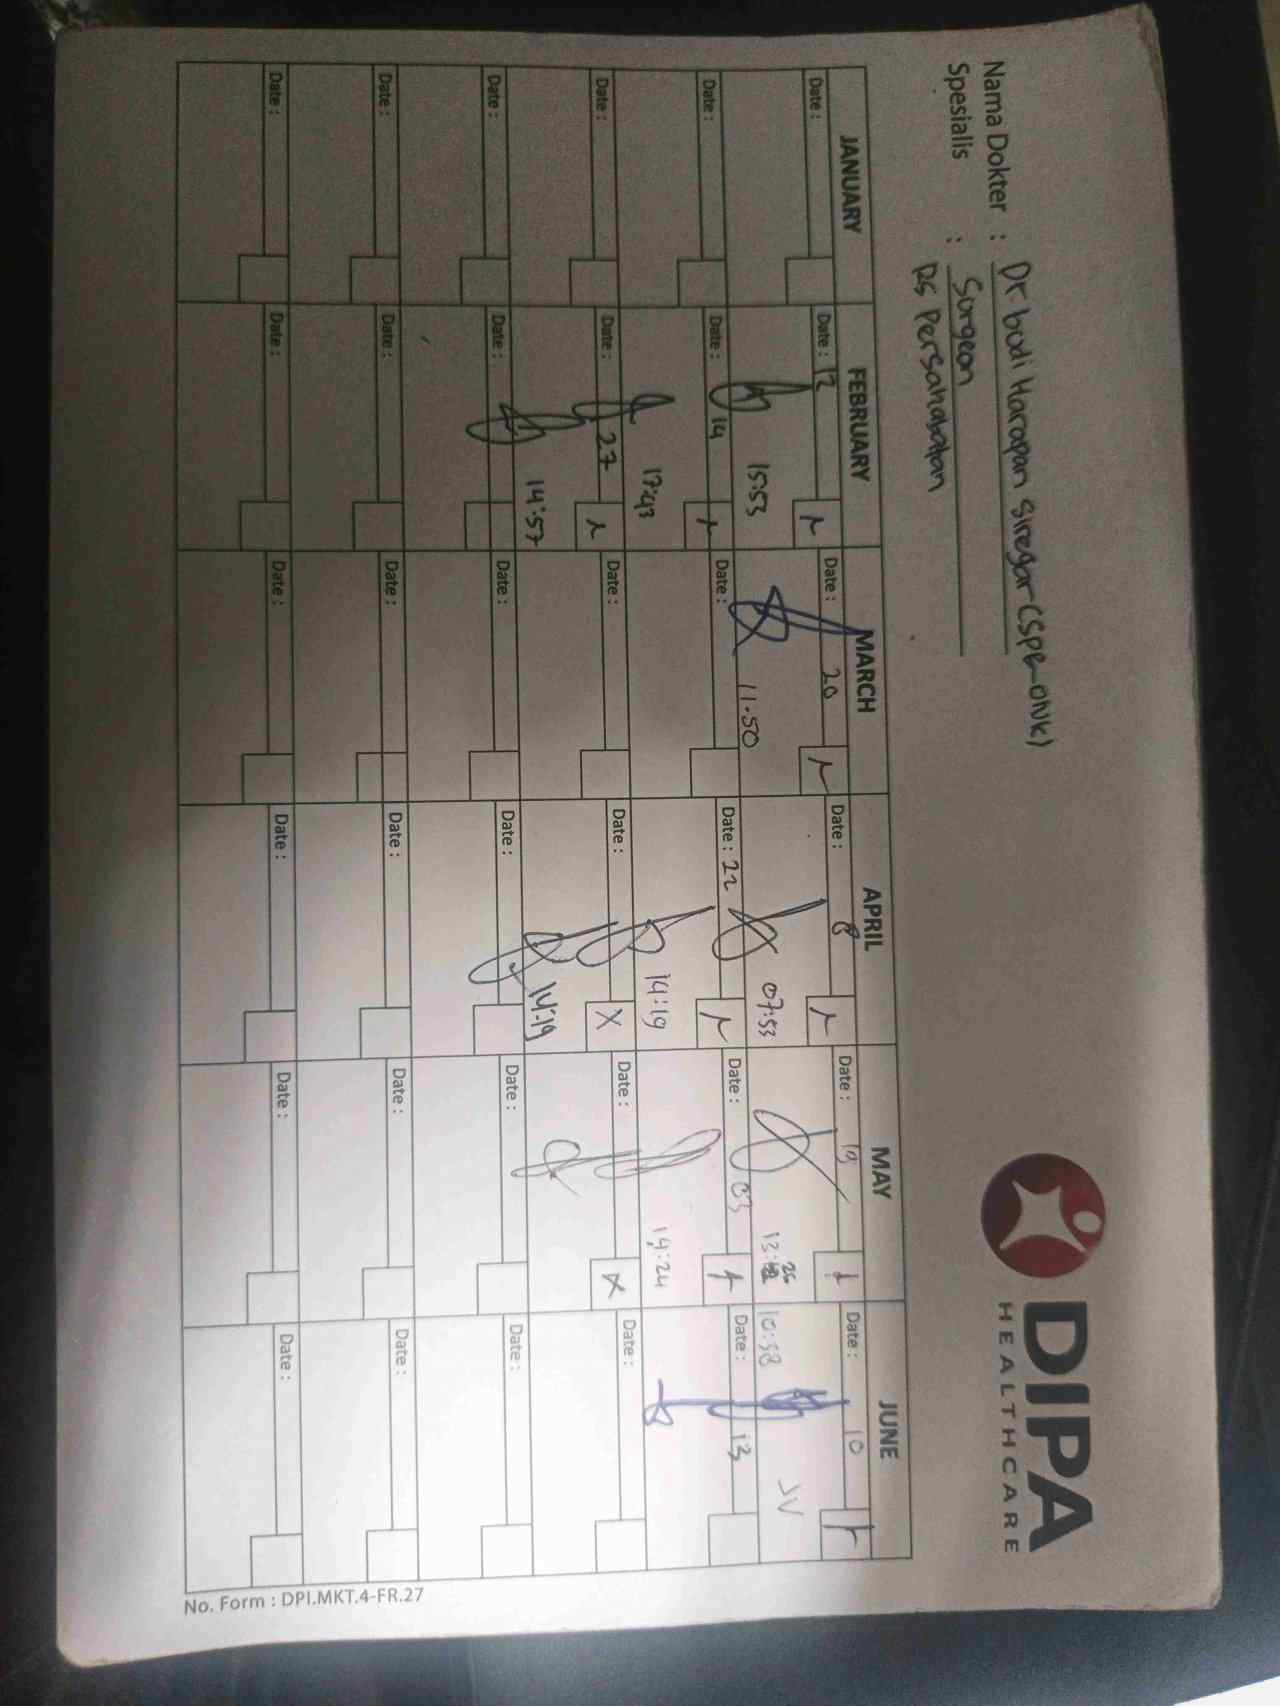 Nama Dokter : Dr budi Harapan siregar (SpB-ONK)
Spesialis : Surgeon
RS Persahabatan
DIPA
HEALTHCARE
JANUARY FEBRUARY MARCH APRIL MAY JUNE
Date : Date : 12 Date : 20 Date : 8 Date : 19 Date : 10
15:53 11.50 07:53 13: 26 10:58
Date : Date : 14 Date : Date : 22 Date : 03 Date : 13
17:43 14:19 14:24
Date : Date : 27 Date : Date : Date : Date :
X X
14:57 14:19
Date : Date : Date : Date : Date : Date :
Date : Date : Date : Date : Date : Date :
Date : Date : Date : Date : Date : Date :
No. Form : DPI.MKT.4-FR.27